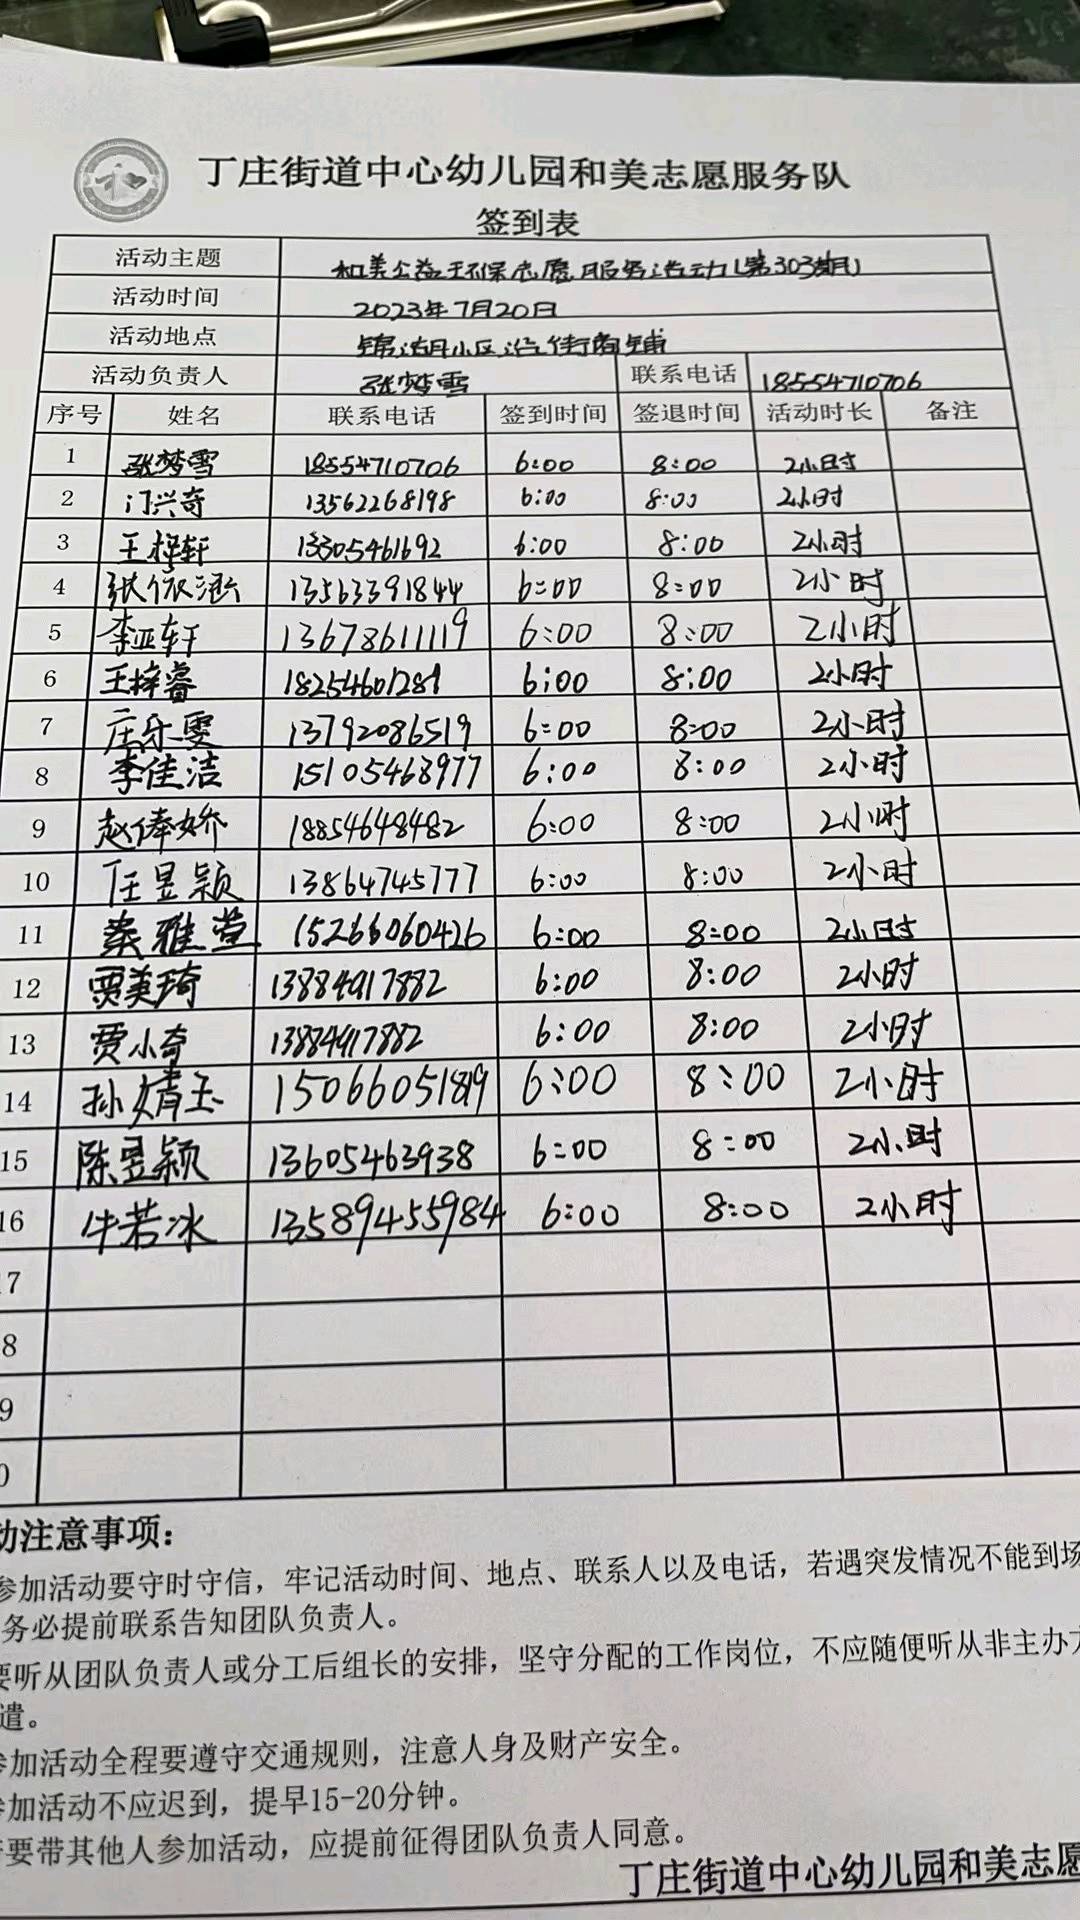 丁庄街道中心幼儿园和美志愿服务队
签到表
活动主题 和美公益环保志愿服务活动(第303期)
活动时间 2023年7月20日
活动地点 锦湖小区沿街商铺
活动负责人 张梦雪 联系电话 18554710706
序号 姓名 联系电话 签到时间 签退时间 活动时长 备注
1 张梦雪 18554710706 6:00 8:00 2小时
2 门兴奇 13562268198 6:00 8:00 2小时
3 王梓轩 13305461692 6:00 8:00 2小时
4 张依涵 13563391844 6:00 8:00 2小时
5 李亚轩 13678611119 6:00 8:00 2小时
6 王梓睿 18254601281 6:00 8:00 2小时
7 庄乐雯 13792086519 6:00 8:00 2小时
8 李佳洁 15105468977 6:00 8:00 2小时
9 赵俸娇 18854648482 6:00 8:00 2小时
10 任昱颖 13864745777 6:00 8:00 2小时
11 綦雅萱 15266060426 6:00 8:00 2小时
12 贾美琦 13884917882 6:00 8:00 2小时
13 贾小奇 13884917882 6:00 8:00 2小时
14 孙婧玉 15066051819 6:00 8:00 2小时
15 陈昱颖 13605463938 6:00 8:00 2小时
16 牛若冰 13589455984 6:00 8:00 2小时
7
8
9
0
动注意事项：
参加活动要守时守信，牢记活动时间、地点、联系人以及电话，若遇突发情况不能到场
务必提前联系告知团队负责人。
要听从团队负责人或分工后组长的安排，坚守分配的工作岗位，不应随便听从非主办方
遣。
参加活动全程要遵守交通规则，注意人身及财产安全。
参加活动不应迟到，提早15-20分钟。
要带其他人参加活动，应提前征得团队负责人同意。
丁庄街道中心幼儿园和美志愿